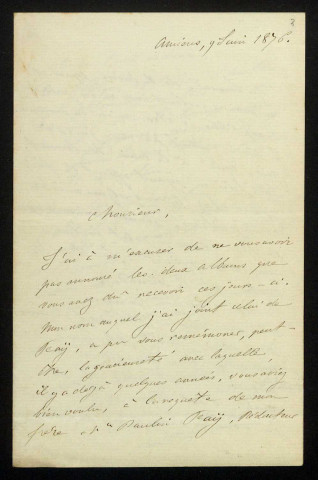 3
Amiens, 9 Juin 1876.
Monsieur,
J'ai à m'excuser de ne vous avoir
pas annoncé les deux albums que
vous avez dû recevoir ces jours-ci.
Mon nom auquel j'ai joint celui de
a pu vous remémorer, peut-
être, la gracieuseté avec laquelle,
il y a déjà quelques années, vous aviez
bien voulu, à la requête de mon
frère Mr Paulin